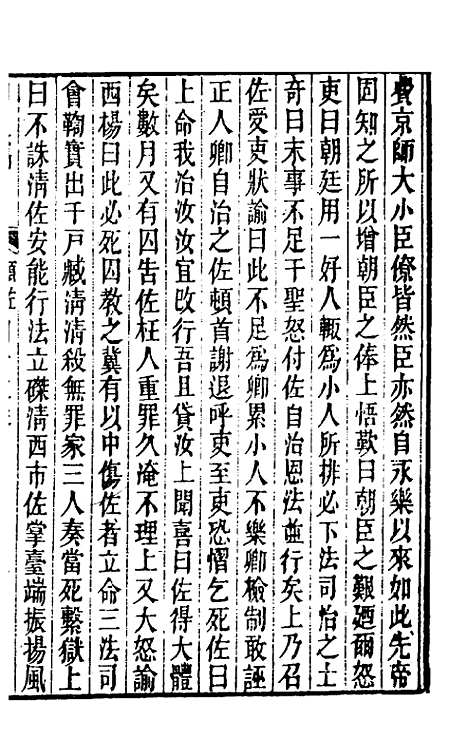 費京師大小臣僚皆然臣亦然自永樂以來如此先帝
固知之所以增朝臣之俸上悟歎曰朝臣之艱廼爾怒
吏曰朝廷用一好人輙爲小人所排必下法司治之士
奇曰末事不足干聖怒付佐自治恩法並行矣上乃召
佐受吏狀諭曰此不足爲卿累小人不樂卿檢制敢誣
正人卿自治之佐頓首謝退呼吏至吏恐慴乞死佐曰
上命我治汝汝宜改行吾且貸汝上聞喜曰佐得大體
矣數月又有囚告佐枉人重罪久淹不理上又大怒諭
西楊曰此必死囚教之冀有以中傷佐者立命三法司
會鞫實出千戸臧淸淸殺無罪家三人奏當死繫獄上
曰不誅淸佐安能行法立磔淸西市佐掌臺端振揚風
顧佐